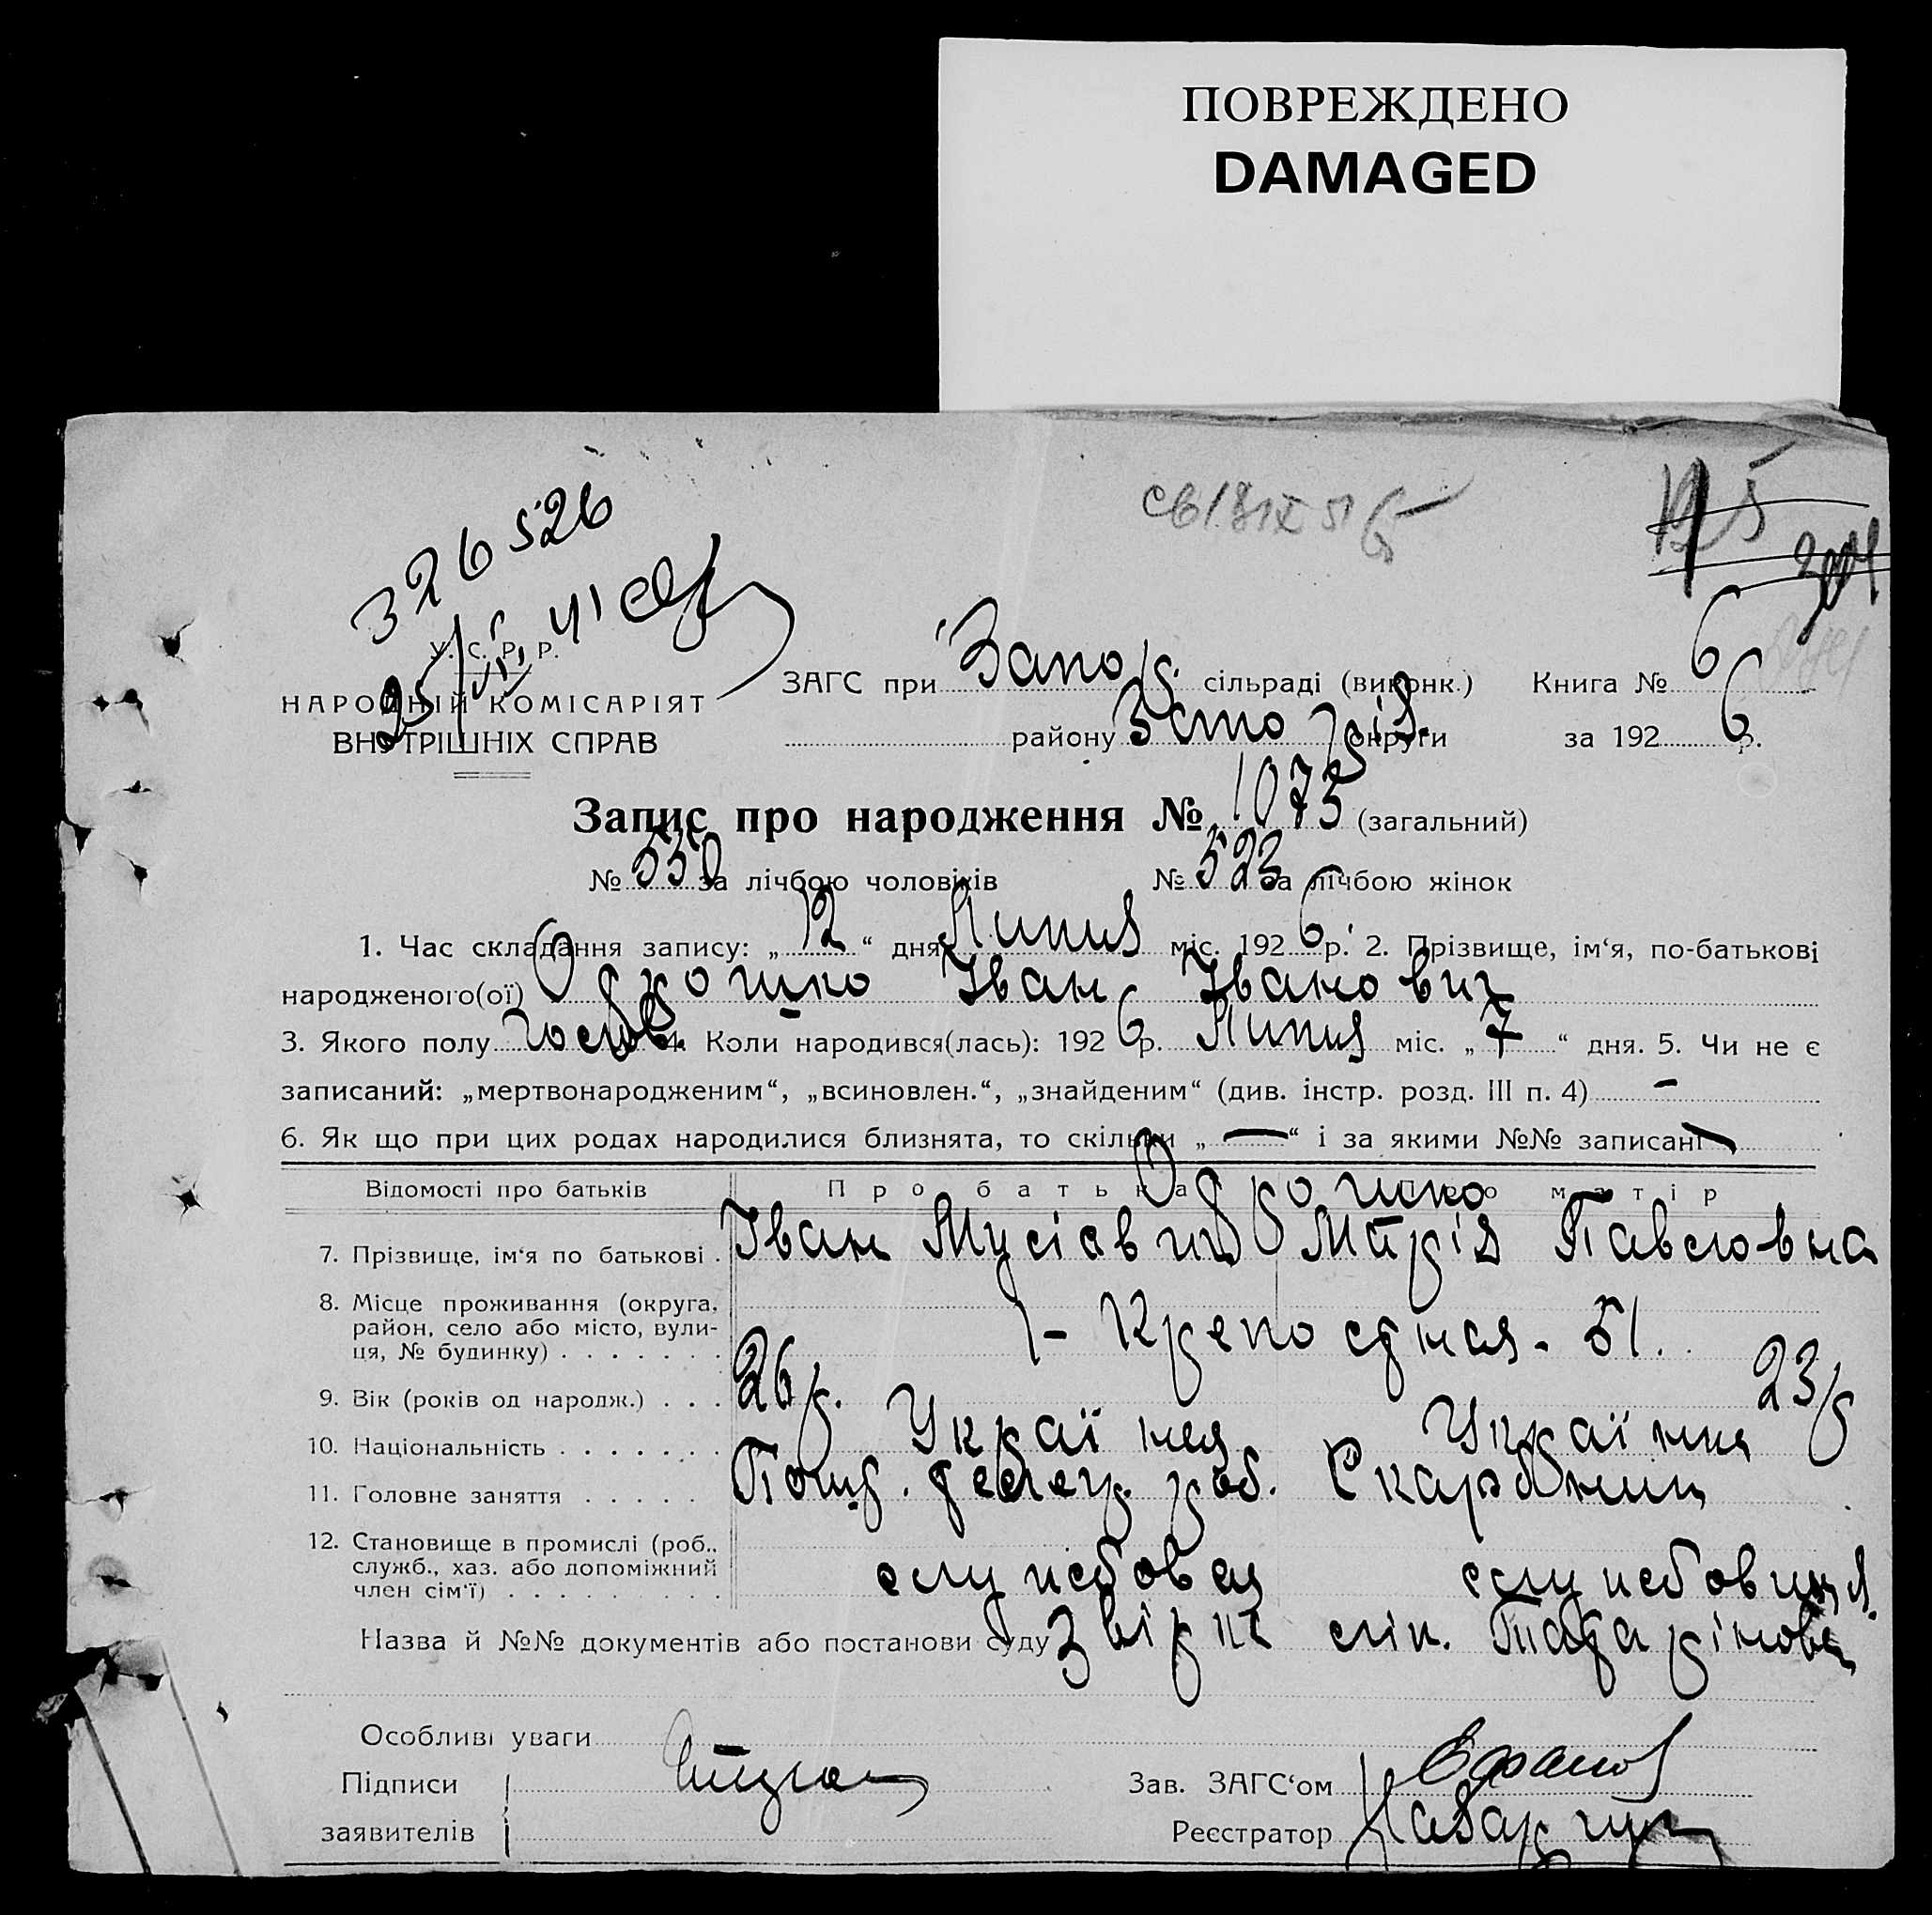 ПОВРЕЖДЕНО
DAMAGED
326526
У. С. Р. Р.
НАРОДНІЙ КОМІСАРІЯТ
ВНУТРІШНІХ СПРАВ
ЗАГС при Запор. сільраді (виконк.) Книга № 6
району Запоріз. округи за 1926 р.
Запис про народження № 1073 (загальний)
№ 550 за лічбою чоловіків № 523 за лічбою жінок
1. Час складання запису: „ 12 “ дня Липня міс. 1926 р. 2. Прізвище, ім‘я, по-батькові
народженого(ої) Іван Іванович
3. Якого полу чолов. 4. Коли народився(лась): 1926 р. Липня міс. „ 7 “ дня. 5. Чи не є
записаний: „мертвонародженим“, „всиновлен.“, „знайденим“ (див. інстр. розд. III п. 4) —
6. Як що при цих родах народилися близнята, то скільки „ — “ і за якими №№ записані —
Відомості про батьків Про батька Про матір
7. Прізвище, ім‘я по батькові . Іван Мусієвич Марія Павловна
8. Місце проживання (округа,
район, село або місто, вули-
ця, № будинку) . . . . . . . Крепостная - 51.
9. Вік (років од народж.) . . . 26 р. 23 р
10. Національність . . . . . . . Українец Українка
11. Головне заняття . . . . . телегр. роб.
12. Становище в промислі (роб.,
служб., хаз. або допоміжний
член сім‘ї) . . . . . . . . . службовец службовиця
Назва й №№ документів або постанови суду
Особливі уваги
Підписи
заявителів
Зав. ЗАГС‘ом
Реєстратор